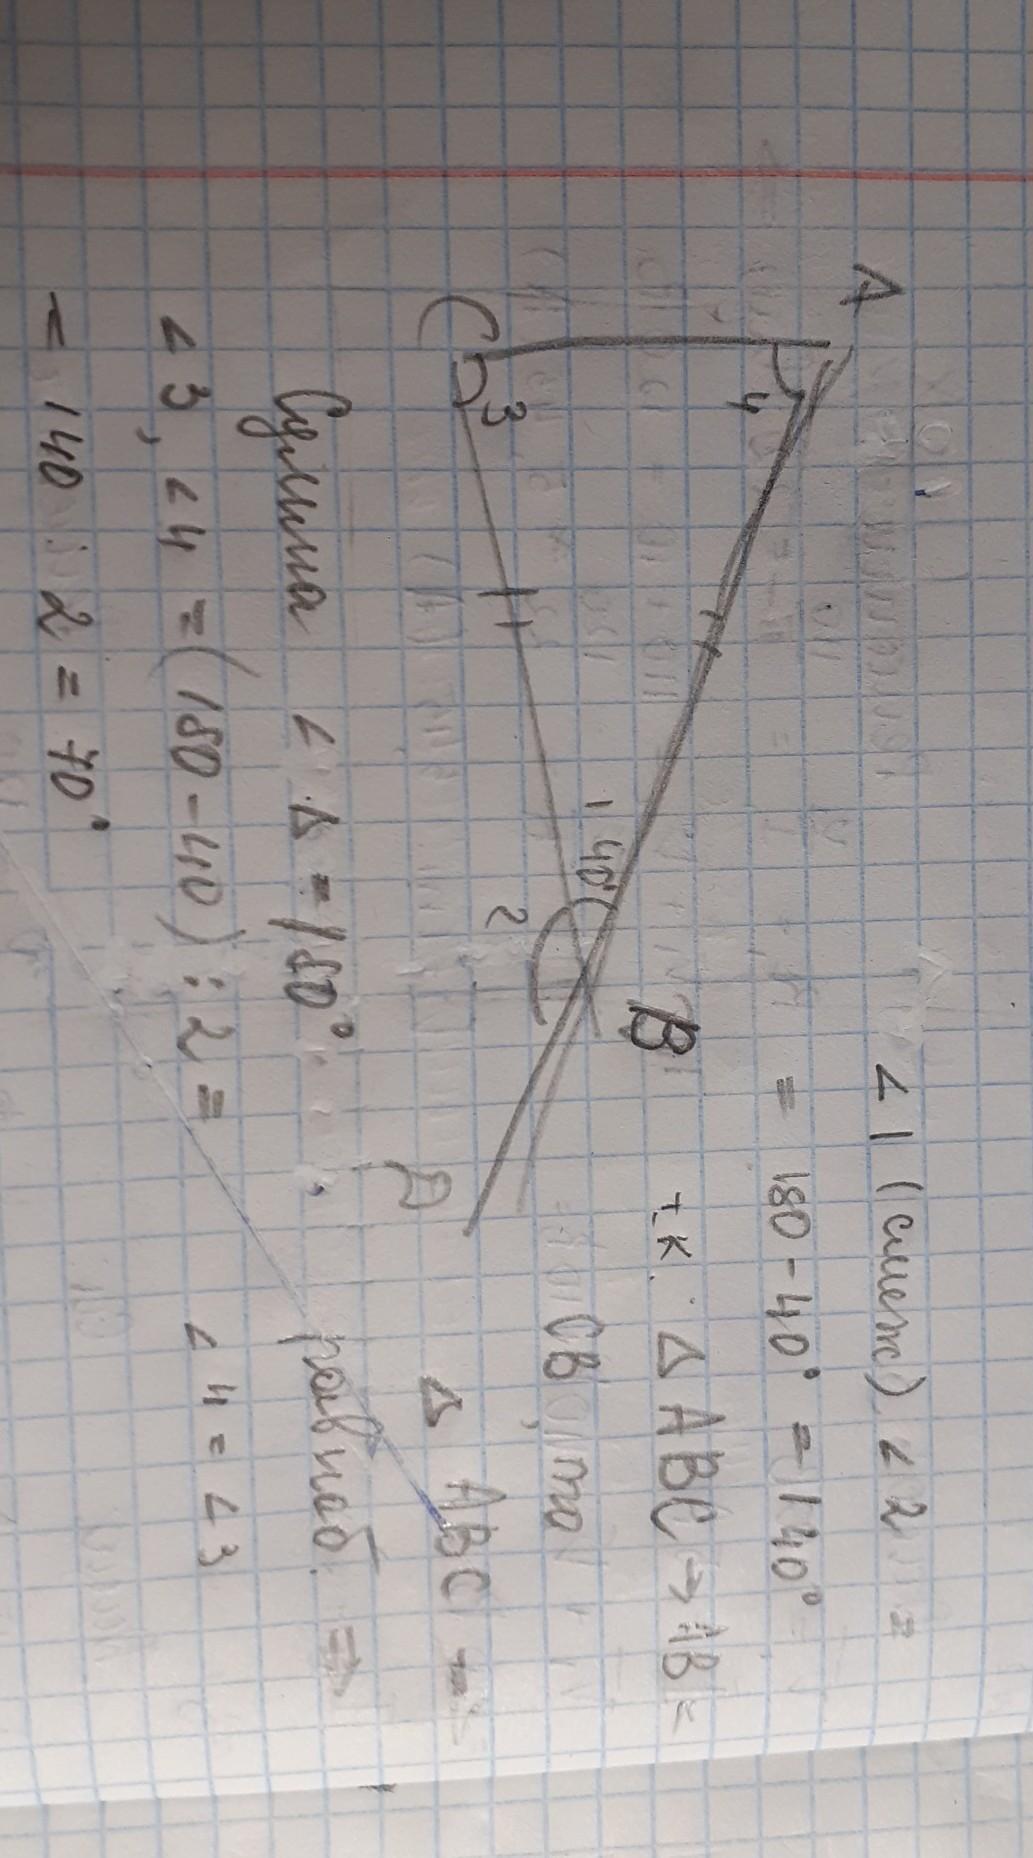 A
B
C
D
4
3
1
40°
2
∠1 (смеж) ∠2 =
= 180 - 40° = 140°
т.к. ΔABC → AB =
= CB, то
Δ ABC -
равноб. ⇒
∠4 = ∠3
Сумма ∠ Δ = 180°
∠3, ∠4 = (180 - 40) : 2 =
= 140 : 2 = 70°